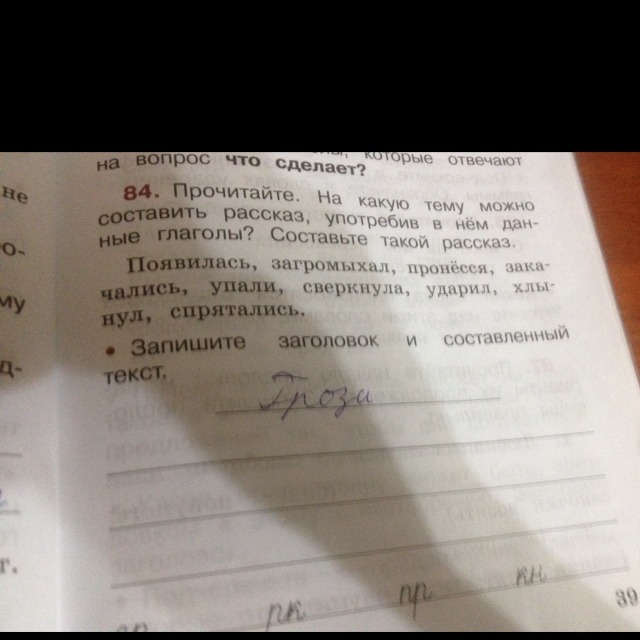 которые отвечают
на вопрос что сделает?
84. Прочитайте. На какую тему можно
составить рассказ, употребив в нём дан-
ные глаголы? Составьте такой рассказ.
Появилась, загромыхал, пронёсся, зака-
чались, упали, сверкнула, ударил, хлы-
нул, спрятались.
• Запишите заголовок и составленный
текст.
Гроза
рк пр кн
39
не
о-
му
д-
т.